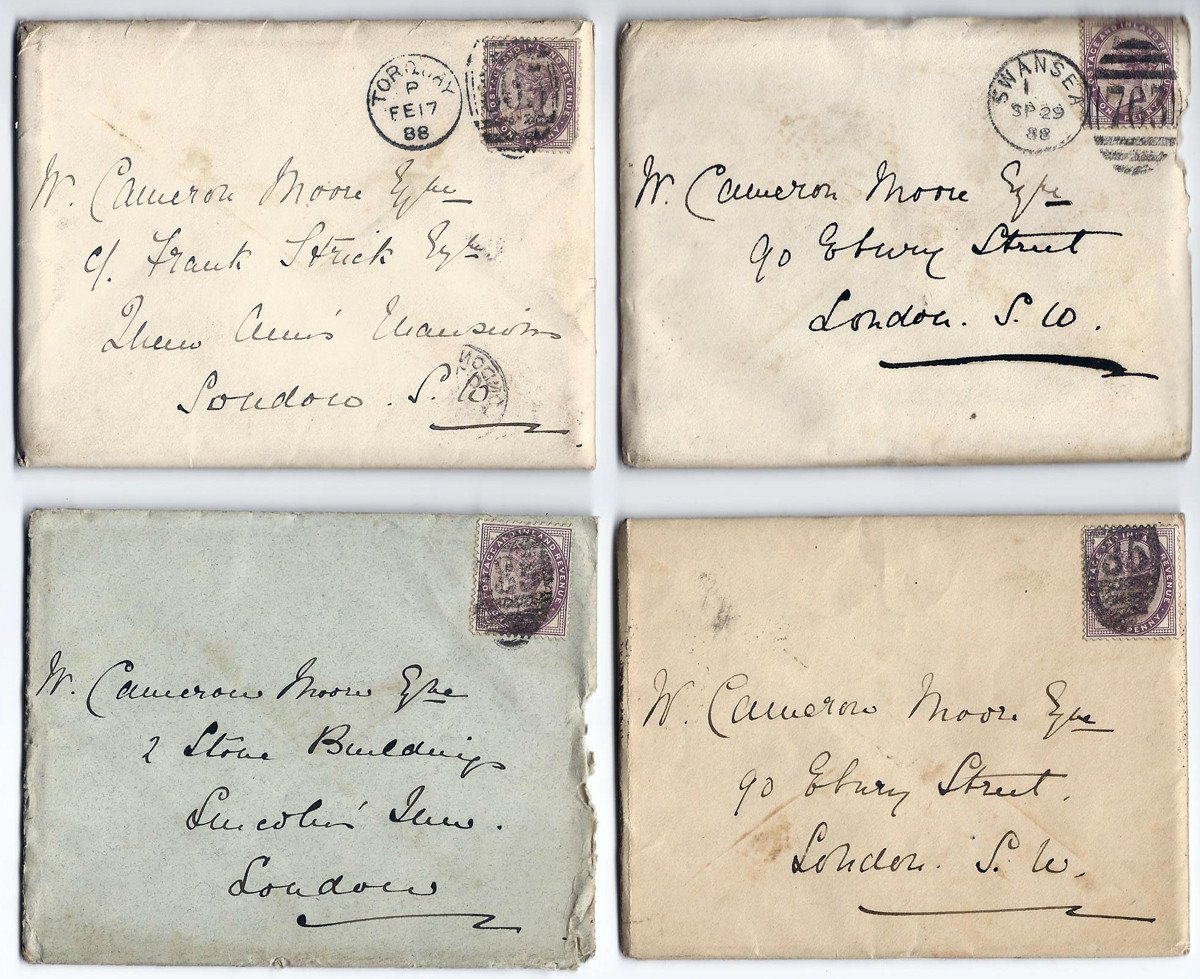 TORQUAY
P
FE 17
88
POSTAGE AND INLAND REVENUE
ONE PENNY
W. Cameron Moore Esqre
c/. Frank Strick Esqre
Queen Anne's Mansions
London. S.W
LONDON
SWANSEA
1
SP 29
88
POSTAGE AND INLAND REVENUE
W. Cameron Moore Esqre
90 Ebury Street
London. S.W.
POSTAGE AND INLAND REVENUE
W. Cameron Moore Esqre
2 Stone Buildings
Lincoln's Inn.
London
PENNY
W. Cameron Moore Esqre
90 Ebury Street.
London. S.W.